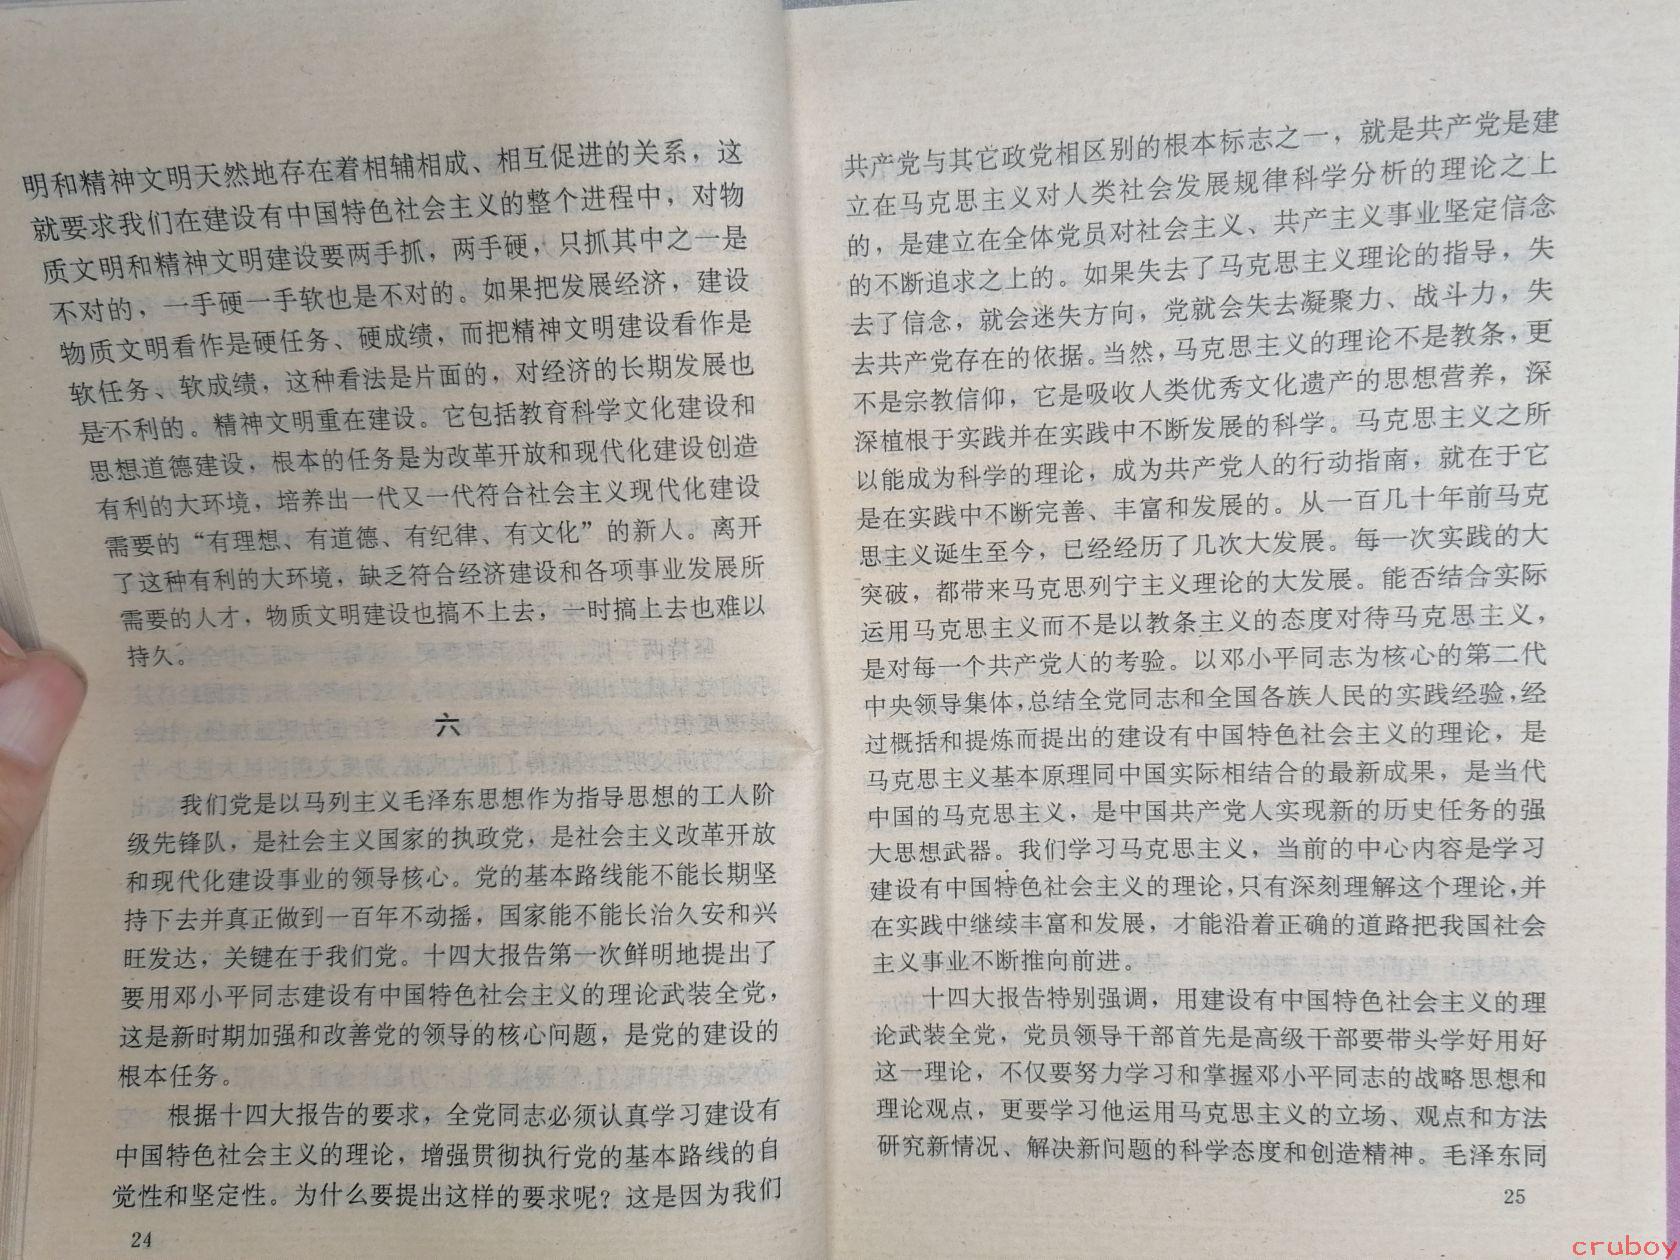 明和精神文明天然地存在着相辅相成、相互促进的关系，这
就要求我们在建设有中国特色社会主义的整个进程中，对物
质文明和精神文明建设要两手抓，两手硬，只抓其中之一是
不对的，一手硬一手软也是不对的。如果把发展经济，建设
物质文明看作是硬任务、硬成绩，而把精神文明建设看作是
软任务、软成绩，这种看法是片面的，对经济的长期发展也
是不利的。精神文明重在建设。它包括教育科学文化建设和
思想道德建设，根本的任务是为改革开放和现代化建设创造
有利的大环境，培养出一代又一代符合社会主义现代化建设
需要的“有理想、有道德、有纪律、有文化”的新人。离开
了这种有利的大环境，缺乏符合经济建设和各项事业发展所
需要的人才，物质文明建设也搞不上去，一时搞上去也难以
持久。
六
我们党是以马列主义毛泽东思想作为指导思想的工人阶
级先锋队，是社会主义国家的执政党，是社会主义改革开放
和现代化建设事业的领导核心。党的基本路线能不能长期坚
持下去并真正做到一百年不动摇，国家能不能长治久安和兴
旺发达，关键在于我们党。十四大报告第一次鲜明地提出了
要用邓小平同志建设有中国特色社会主义的理论武装全党，
这是新时期加强和改善党的领导的核心问题，是党的建设的
根本任务。
根据十四大报告的要求，全党同志必须认真学习建设有
中国特色社会主义的理论，增强贯彻执行党的基本路线的自
觉性和坚定性。为什么要提出这样的要求呢？这是因为我们
24
共产党与其它政党相区别的根本标志之一，就是共产党是建
立在马克思主义对人类社会发展规律科学分析的理论之上
的，是建立在全体党员对社会主义、共产主义事业坚定信念
的不断追求之上的。如果失去了马克思主义理论的指导，失
去了信念，就会迷失方向，党就会失去凝聚力、战斗力，失
去共产党存在的依据。当然，马克思主义的理论不是教条，更
不是宗教信仰，它是吸收人类优秀文化遗产的思想营养，深
深植根于实践并在实践中不断发展的科学。马克思主义之所
以能成为科学的理论，成为共产党人的行动指南，就在于它
是在实践中不断完善、丰富和发展的。从一百几十年前马克
思主义诞生至今，已经经历了几次大发展。每一次实践的大
突破，都带来马克思列宁主义理论的大发展。能否结合实际
运用马克思主义而不是以教条主义的态度对待马克思主义，
是对每一个共产党人的考验。以邓小平同志为核心的第二代
中央领导集体，总结全党同志和全国各族人民的实践经验，经
过概括和提炼而提出的建设有中国特色社会主义的理论，是
马克思主义基本原理同中国实际相结合的最新成果，是当代
中国的马克思主义，是中国共产党人实现新的历史任务的强
大思想武器。我们学习马克思主义，当前的中心内容是学习
建设有中国特色社会主义的理论，只有深刻理解这个理论，并
在实践中继续丰富和发展，才能沿着正确的道路把我国社会
主义事业不断推向前进。
十四大报告特别强调，用建设有中国特色社会主义的理
论武装全党，党员领导干部首先是高级干部要带头学好用好
这一理论，不仅要努力学习和掌握邓小平同志的战略思想和
理论观点，更要学习他运用马克思主义的立场、观点和方法
研究新情况、解决新问题的科学态度和创造精神。毛泽东同
25
cruboy